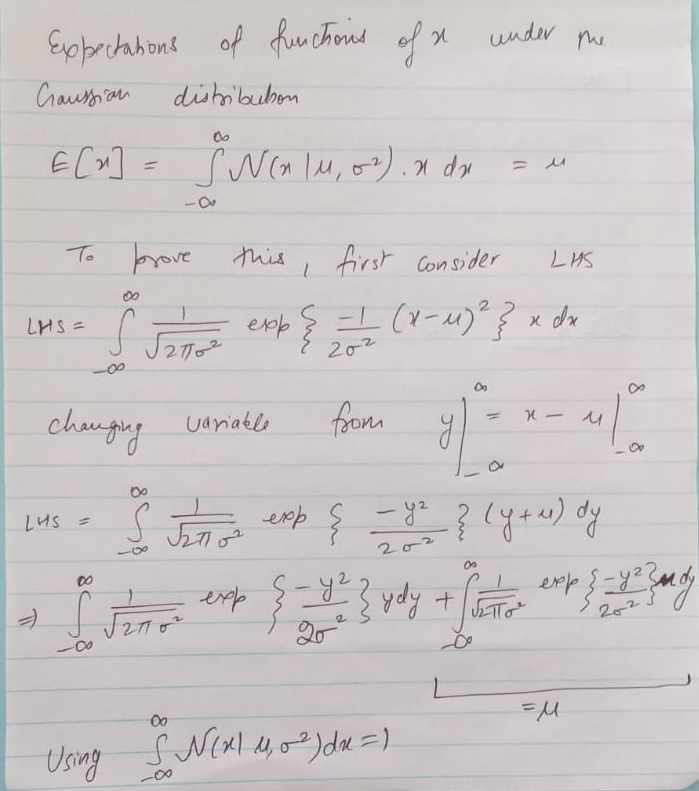 Expectations of functions of x under the
Gaussian distribution
E[x] = ∫_{-∞}^{∞} N(x|μ, σ²). x dx = μ
To prove this, first consider LHS
LHS = ∫_{-∞}^{∞} 1/√(2πσ²) exp { -1/2σ² (x-μ)² } x dx
changing variable from y|_{-∞}^{∞} = x - μ|_{-∞}^{∞}
LHS = ∫_{-∞}^{∞} 1/√(2πσ²) exp { -y²/2σ² } (y+μ) dy
⇒ ∫_{-∞}^{∞} 1/√(2πσ²) exp { -y²/2σ² } y dy + ∫_{-∞}^{∞} 1/√(2πσ²) exp { -y²/2σ² } μ dy
= μ
Using ∫_{-∞}^{∞} N(x|μ, σ²) dx = 1